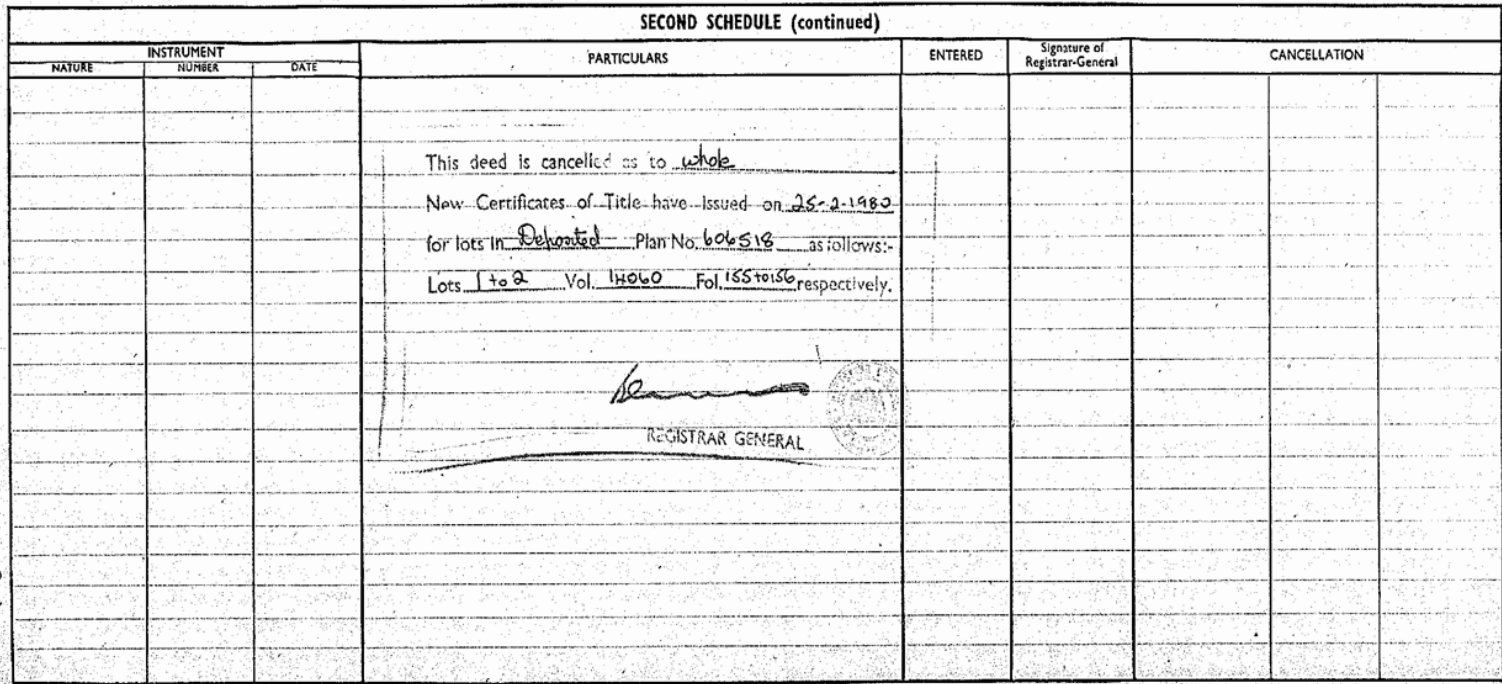 SECOND SCHEDULE (continued)
INSTRUMENT
NATURE NUMBER DATE
PARTICULARS
ENTERED
Signature of
Registrar-General
CANCELLATION
This deed is cancelled as to whole
New Certificates of Title have issued on 25-2-1980
for lots in Deposited Plan No. 606518 as follows:-
Lots 1 to 2 Vol. 14060 Fol. 155 to 156 respectively.
REGISTRAR GENERAL